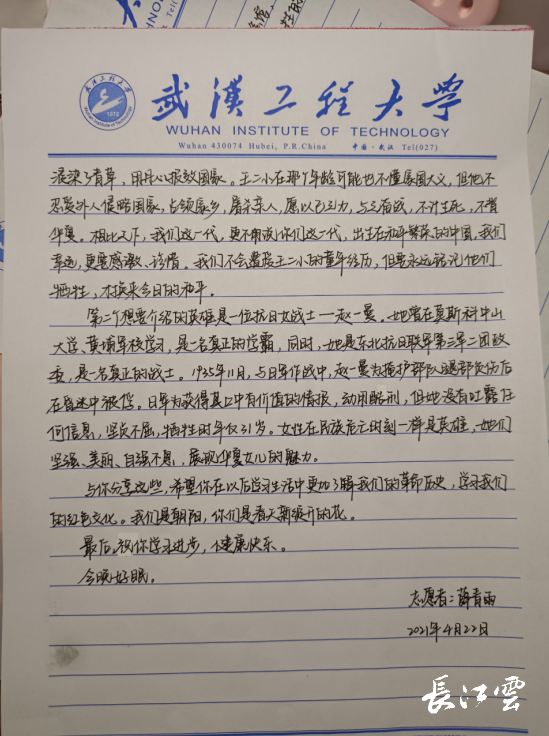 武汉工程大学
WUHAN INSTITUTE OF TECHNOLOGY
Wuhan 430074 Hubei, P.R.China 中国·武汉 Tel(027)
1972
浸染了青草,用丹心报效国家。王二小在那个年龄可能也不懂家国大义,但他不
忍受外人侵略国家,占领家乡,屠杀亲人,愿以己之力,与之奋战,不计生死,不曾
华夏。相比之下,我们这一代,更不用说你们这一代,出生在和平繁荣的中国,我们
幸运,更要感激、珍惜。我们不会遭受王二小的童年经历,但要永远铭记他们
牺牲,才换来今日的和平。
第二个想要介绍的英雄是一位抗日女战士——赵一曼。她曾在莫斯科中山
大学、黄埔军校学习,是一名真正的学霸,同时,她是东北抗日联军第三军二团政
委,是一名真正的战士。1935年11月,与日军作战中,赵一曼为掩护部队腿部负伤后
在昏迷中被俘。日军为获得其口中有价值的情报,动用酷刑,但她没有吐露任
何信息,坚贞不屈,牺牲时年仅31岁。女性在民族危亡时刻一样是英雄,她们
坚强、美丽、自强不息,展现华夏女儿的魅力。
与你分享这些,希望你在以后学习生活中更加了解我们的革命历史,学习我们
的红色文化。我们是朝阳,你们是春天新绽开的花。
最后,祝你学习进步,健康快乐。
今晚好眠。
志愿者:薛青雨
2021年4月22日
長江雲